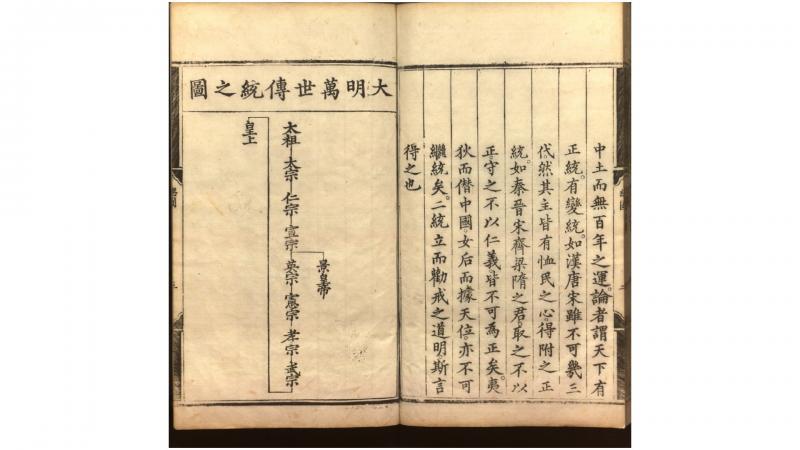 中土而無百年之運論者謂天下有
正統有變統如漢唐宋雖不可幾三
代然其主皆有恤民之心得附之正
統如秦晉宋齊梁隋之君取之不以
正守之不以仁義皆不可為正矣夷
狄而僭中國女后而據天位亦不可
繼統矣二統立而勸戒之道明斯言
得之也
大明萬世傳統之圖
景皇帝
太祖 太宗 仁宗 宣宗 英宗 憲宗 孝宗 武宗
皇上